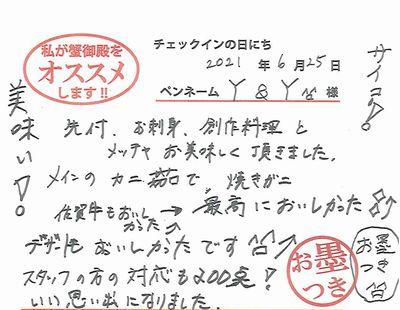 私が蟹御殿を
オススメ
します!!
チェックインの日にち
2021 年 6月 25日
ペンネーム Y & Y 様
サイコー!
美味い!
先付、お刺身、創作料理と
メッチャ お美味しく頂きました。
メインのカニ 焼きガニ
佐賀牛もおいしかった→最高においしかった
デザートもおいしかったです
スタッフの方の対応も200点!
いい思い出になりました。
お墨つき
お墨つき